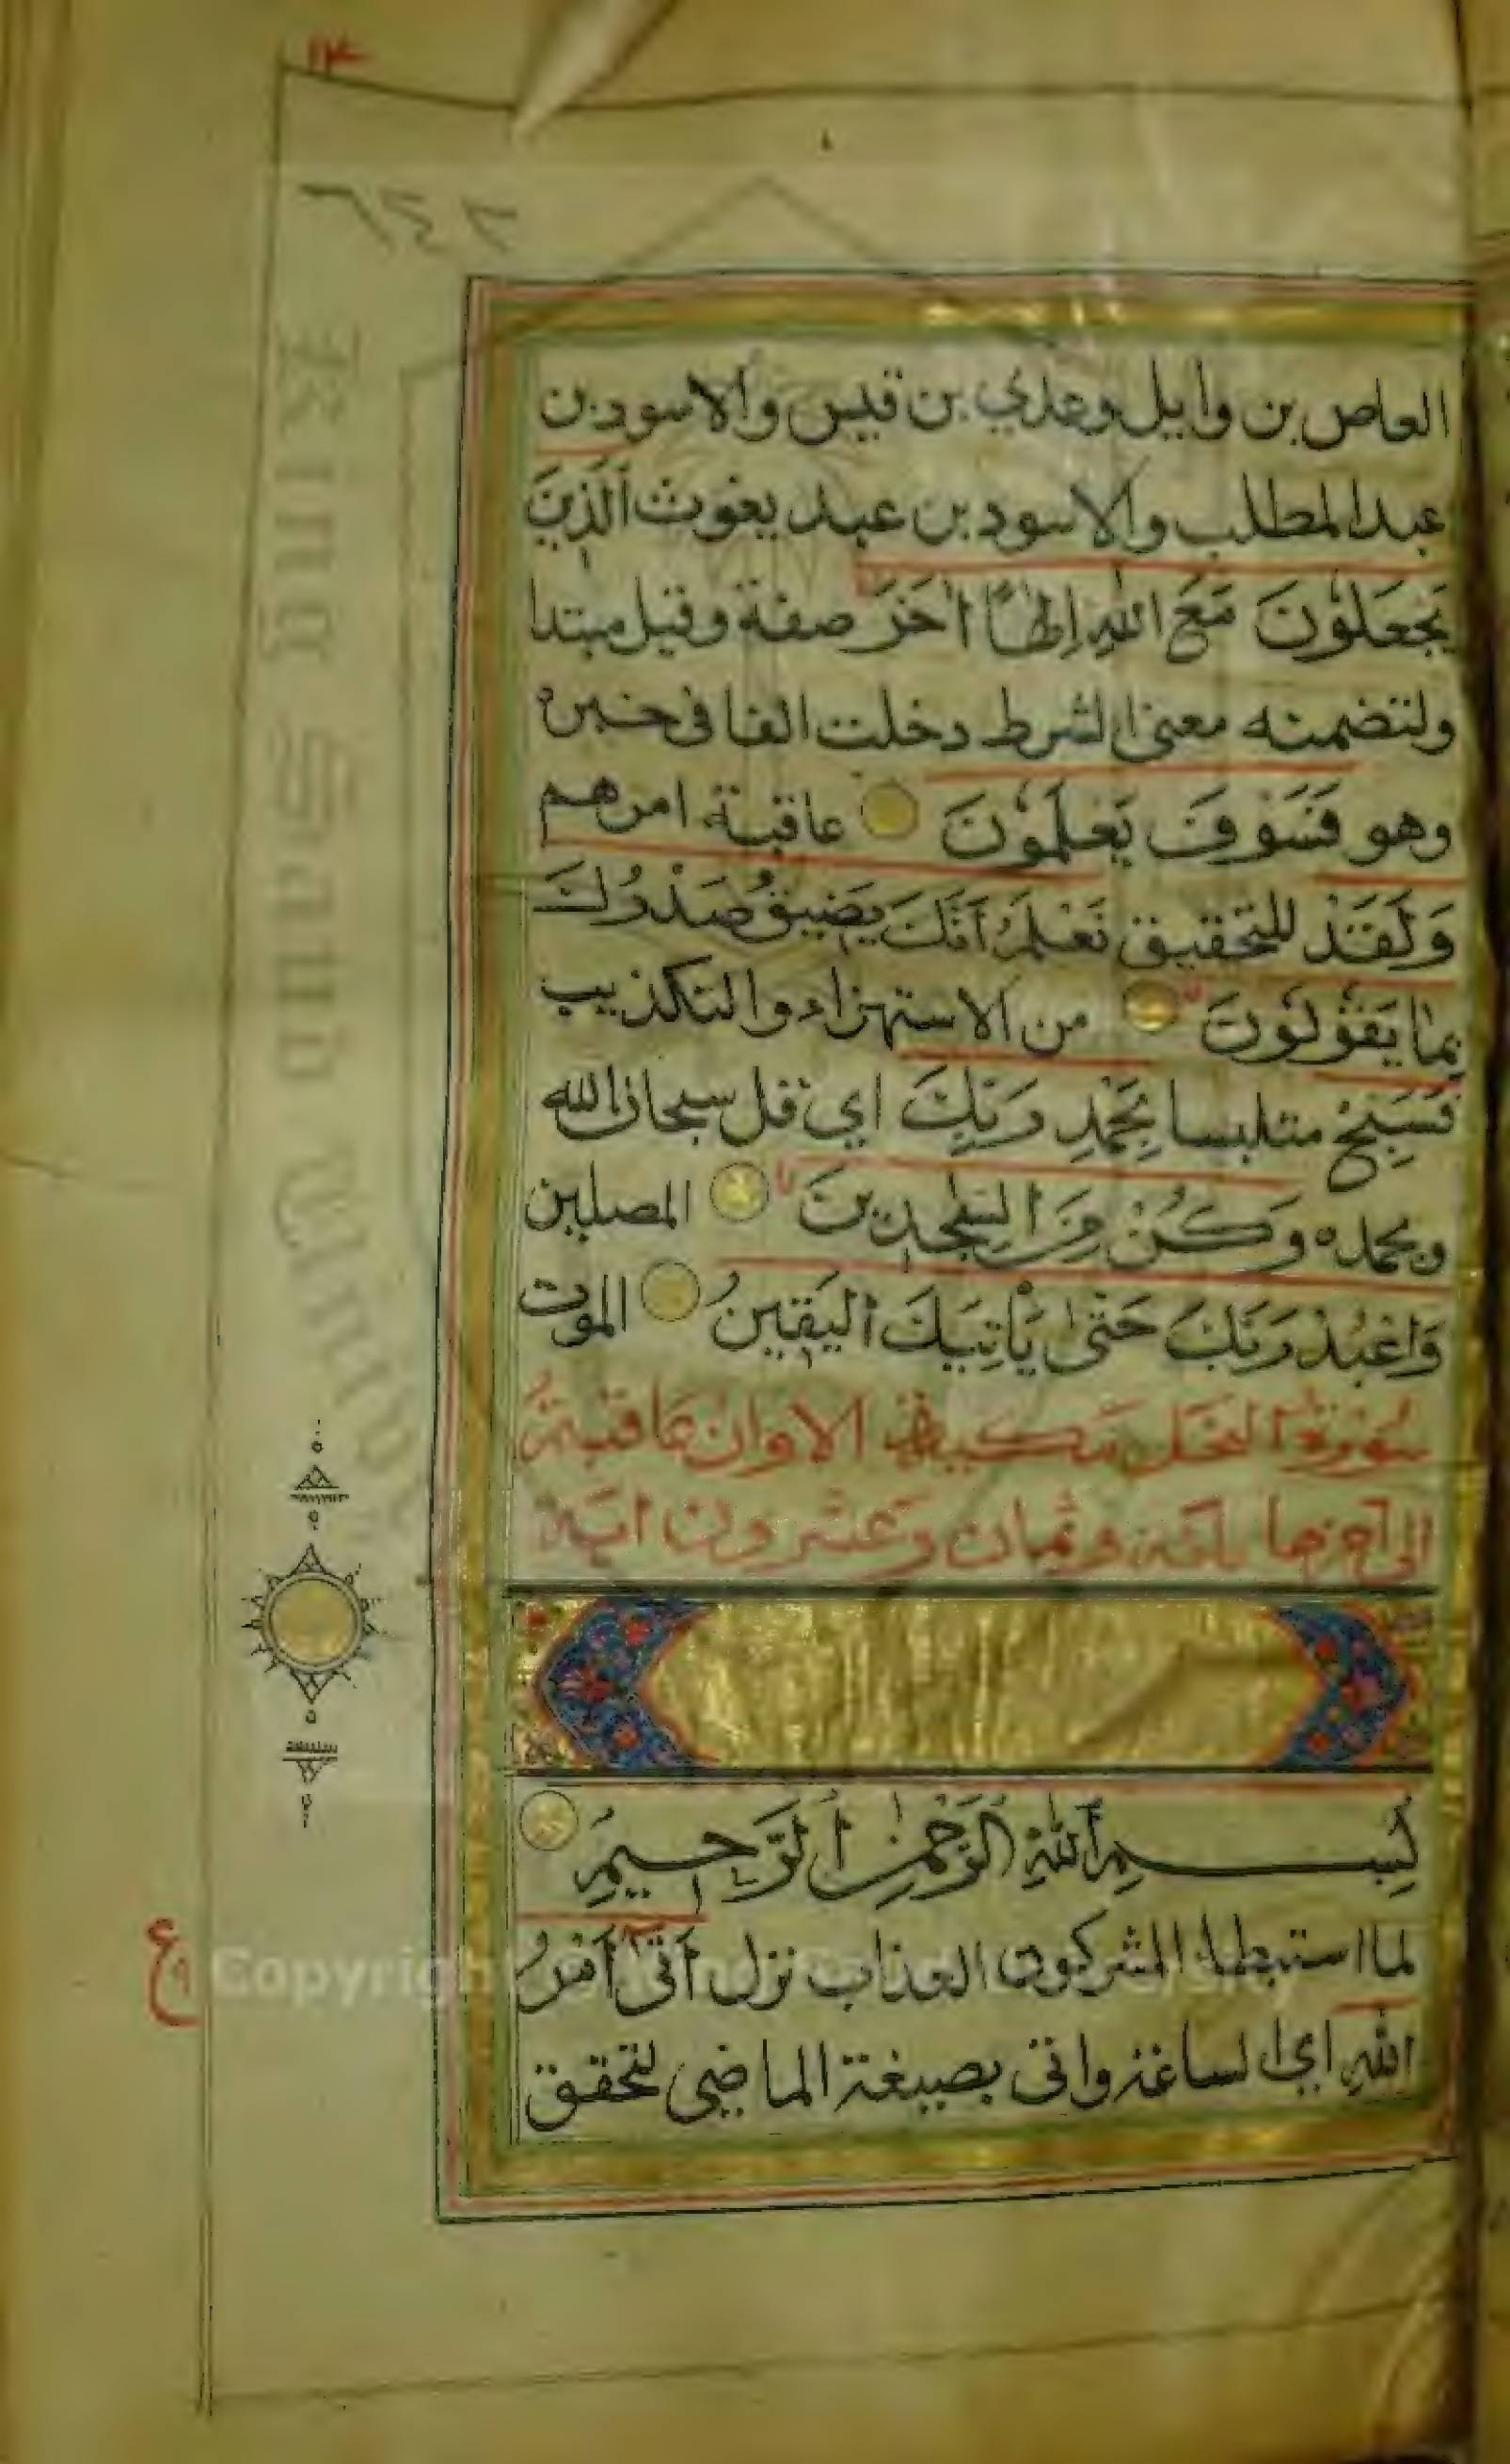 ١٣
٢٤٢
العاص بن وايل وعدي بن قيس والاسود بن
عبد المطلب والاسود بن عبد يغوث ٱلَّذِينَ
يَجْعَلُونَ مَعَ اللّٰهِ إِلٰهًا اٰخَرَ صفة وقيل مبتدا
ولتضمنه معنى الشرط دخلت الفا في خبره
وهو فَسَوْفَ يَعْلَمُونَ عاقبة امرهم
وَلَقَدْ للتحقيق نَعْلَمُ أَنَّكَ يَضِيقُ صَدْرُكَ
بِمَا يَقُولُونَ من الاستهزاء والتكذيب
فَسَبِّحْ متلبسا بِحَمْدِ رَبِّكَ اي قل سبحان الله
وبحمده وَكُنْ مِنَ السّٰجِدِينَ المصلين
وَاعْبُدْ رَبَّكَ حَتّٰى يَأْتِيَكَ الْيَقِينُ الموت
سورة النحل مكية الا وان عاقبتم
الى اخرها مائة وثمان وعشرون اية
بِسْمِ ٱللّٰهِ الرَّحْمٰنِ ٱلرَّحِيمِ
لما استبطا المشركون العذاب نزل أَتٰى أَمْرُ
اللّٰهِ اي الساعة واتى بصيغة الماضي لتحقق
King Saud University
Copyright © King Saud University